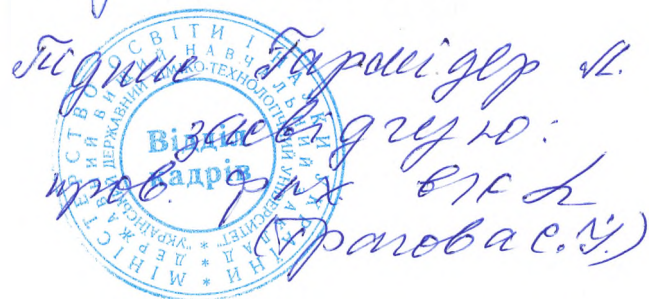 Підпис Гармідер Л.
засвідчую:
пров. фах ВК
МІНІСТЕРСТВО ОСВІТИ І НАУКИ УКРАЇНИ
ДЕРЖАВНИЙ ВИЩИЙ НАВЧАЛЬНИЙ ЗАКЛАД
"УКРАЇНСЬКИЙ ДЕРЖАВНИЙ ХІМІКО-ТЕХНОЛОГІЧНИЙ УНІВЕРСИТЕТ"
Відділ
кадрів